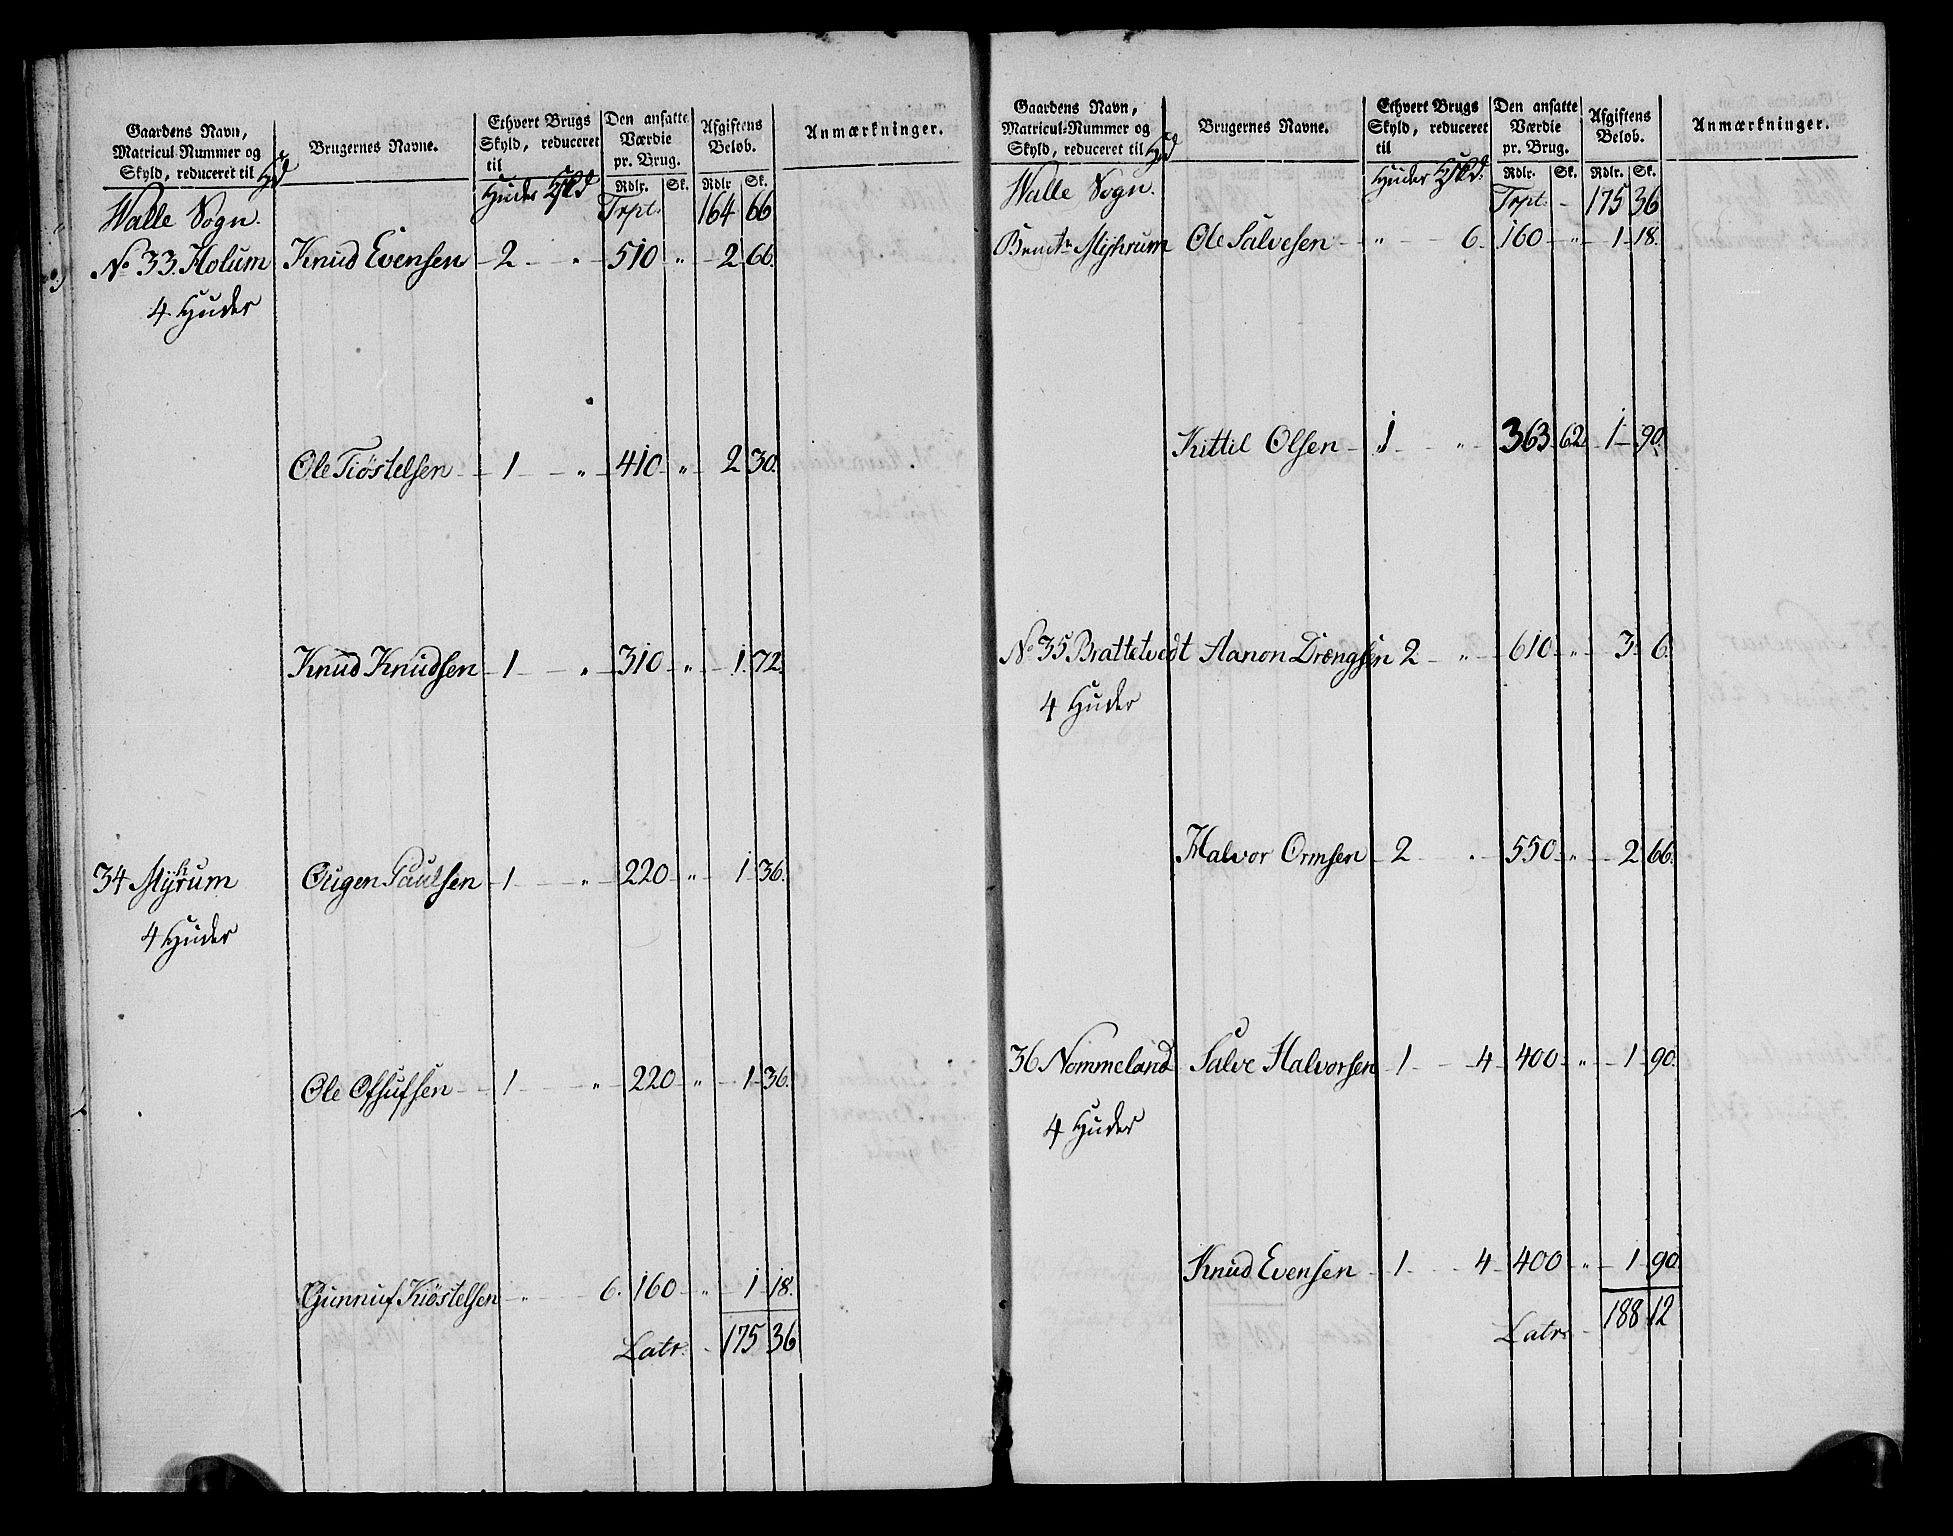 Gaardens Navn, Matricul-Nummer og Skyld, reduceret til
Brugernes Navne.
Ethvert Brugs Skyld, reduceret til Huder
Den ansatte Værdie pr. Brug.
Rdlr. Sk.
Afgiftens Beløb.
Rdlr Sk.
Anmærkninger.
Walle Sogn. Trpt. 164 66
No 33. Holum Knud Evensen 2 " 510 " 2 66.
4 Huder
Ole Tiöstelsen 1 " 410 " 2 30.
Knud Knudsen 1 " 310 " 1 72.
34 Myrum Ougen Paulsen 1 " 220 " 1 36.
4 Huder
Ole Ofsufsen 1 " 220 " 1 36.
Gunnuf Kiöstelsen " 6. 160 " 1 18.
Latr. 175 36
Gaardens Navn, Matricul-Nummer og Skyld, reduceret til
Brugernes Navne.
Ethvert Brugs Skyld, reduceret til Huder
Den ansatte Værdie pr. Brug.
Rdlr. Sk.
Afgiftens Beløb.
Rdlr. Sk.
Anmærkninger.
Walle Sogn. Trpt. 175 36
Ole Salvesen " 6. 160 " 1 18.
Kittil Olsen 1 " 363 62 1 90.
No 35 Brattetvedt Aanon Drengsen 2 " 610 " 3 6.
4 Huder
Halvor Ormsen 2 " 550 " 2 66.
36 Nommeland Salve Halvorsen 1 4 400 " 1 90.
4 Huder
Knud Evensen 1 4 400 " 1 90.
Latr. 188 12